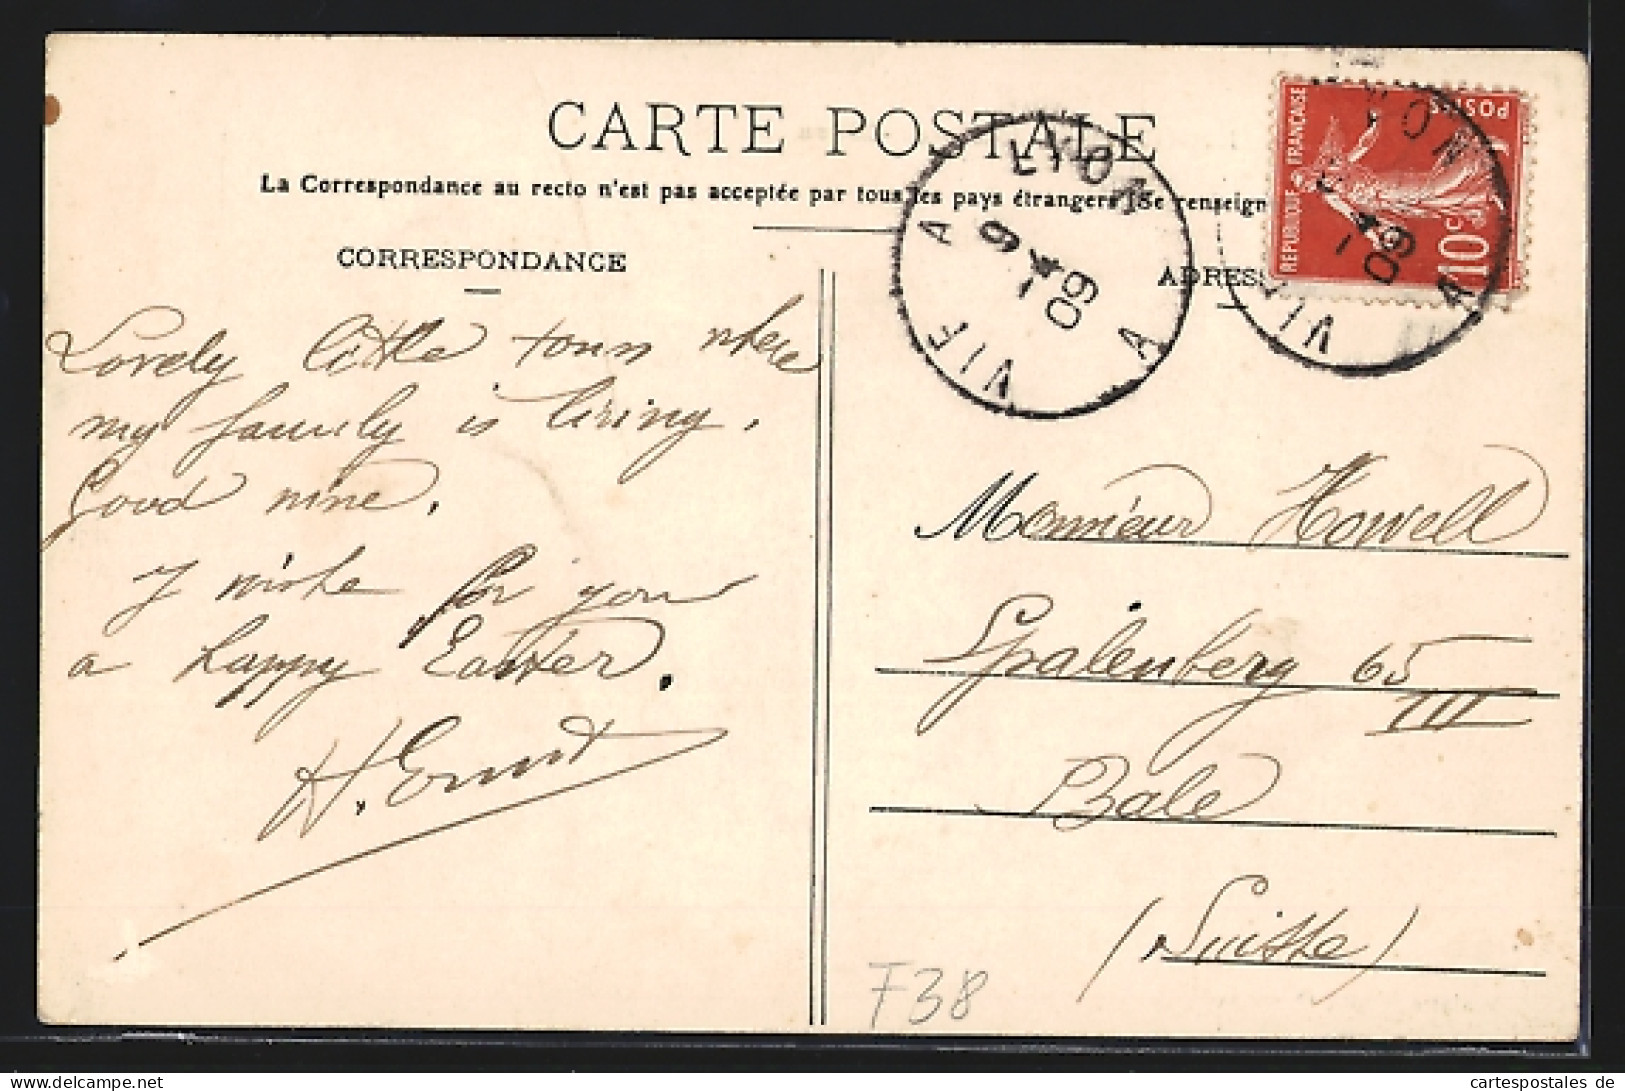 CARTE POSTALE
La Correspondance au recto n'est pas acceptée par tous les pays étrangers (Se renseign
CORRESPONDANCE
ADRESS
Lovely little town where
my family is living.
Good wine.
I wishe for you
a happy Easter.
H. Ernst
LYON
VIF A
9 - 4
09
A
REPUBLIQUE FRANCAISE
POSTES
10c
YON
4
09
VI
A
Monsieur Howell
Spalenberg 65 III
Bale
(Suisse)
F38
cartespostales de